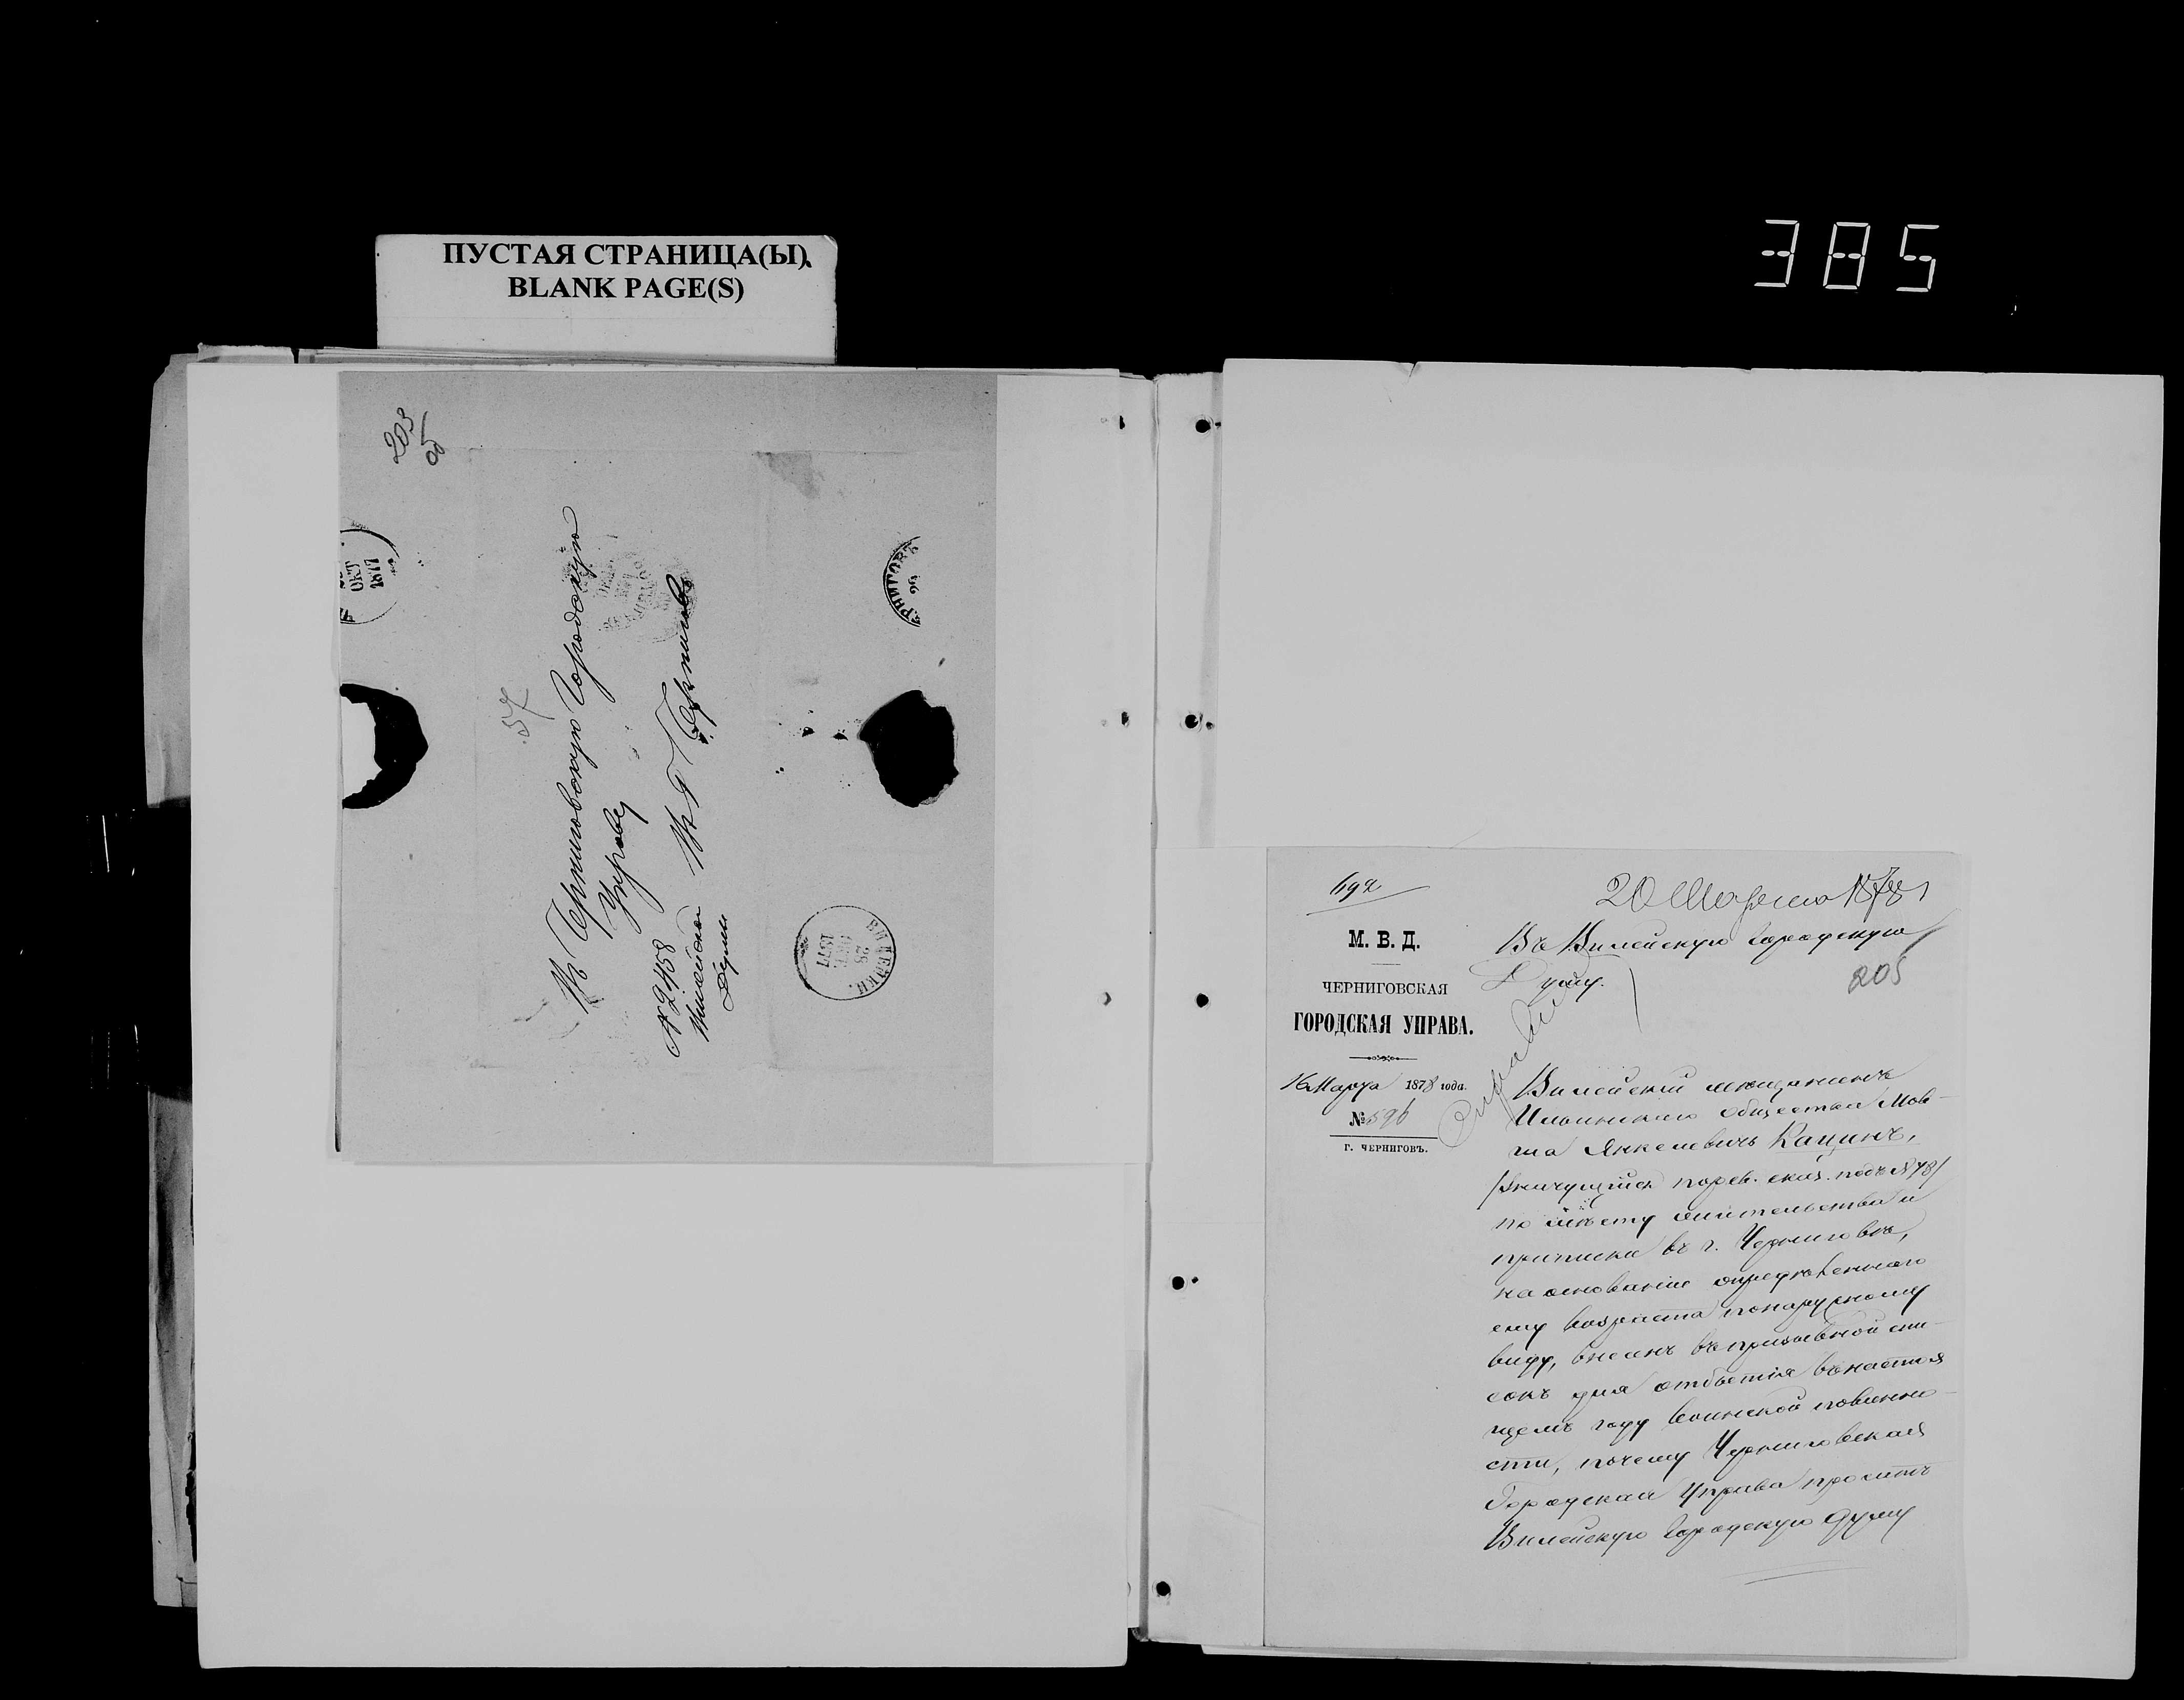 ПУСТАЯ СТРАНИЦА(Ы)
BLANK PAGE(S)
385
203
об
57
Въ Черниговскую Городскую
Управу
№ 2458
Вилейской
Думы
Въ г. Черниговъ
ОКТ
1877
ВИЛЕЙКИ
28
1877
692
20 Марта 1878
М. В. Д.
ЧЕРНИГОВСКАЯ
ГОРОДСКАЯ УПРАВА.
16 Марта 1878 года.
№ 596
Г. ЧЕРНИГОВЪ.
Въ Вилейскую Городскую
Думу.
205
Вилейскій мещанинъ
Ильинскаго общества Мов-
ша Янкелевичъ Кацинъ,
/значущійся по рев. сказ. подъ № 48/
по месту жительства и
приписки въ г. Чернигове,
на основаніи определеннаго
ему возраста по наружному
виду, внесенъ въ призывной спи-
сокъ для отбытія въ настоя
щемъ году воинской повинно-
сти, почему Черниговская
Городская Управа проситъ
Вилейскую Городскую Думу